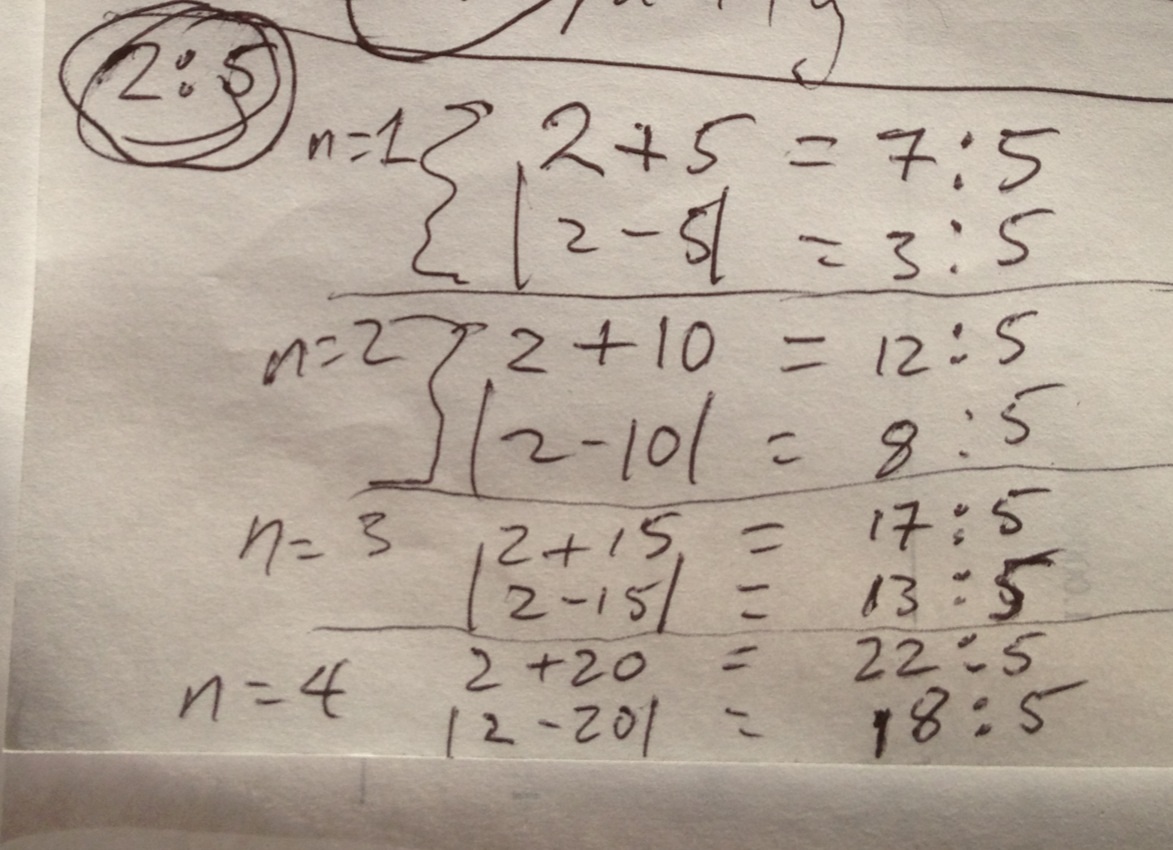 2:5
n=1 2+5 = 7:5
|2-5| = 3:5
n=2 2+10 = 12:5
|2-10| = 8:5
n=3 2+15 = 17:5
|2-15| = 13:5
2+20 = 22:5
n=4 |2-20| = 18:5